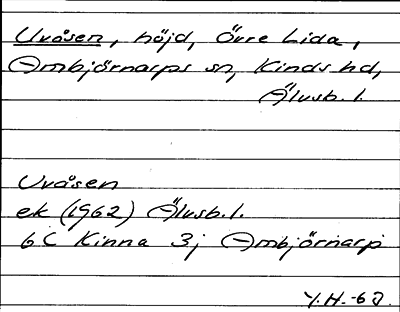 Uvåsen, höjd, Övre Lida,
Ambjörnarps sn, Kinds hd,
Älvsb. l.
Uvåsen
ek (1962) Älvsb. l.
6C Kinna 3j Ambjörnarp
Y.H. -63.